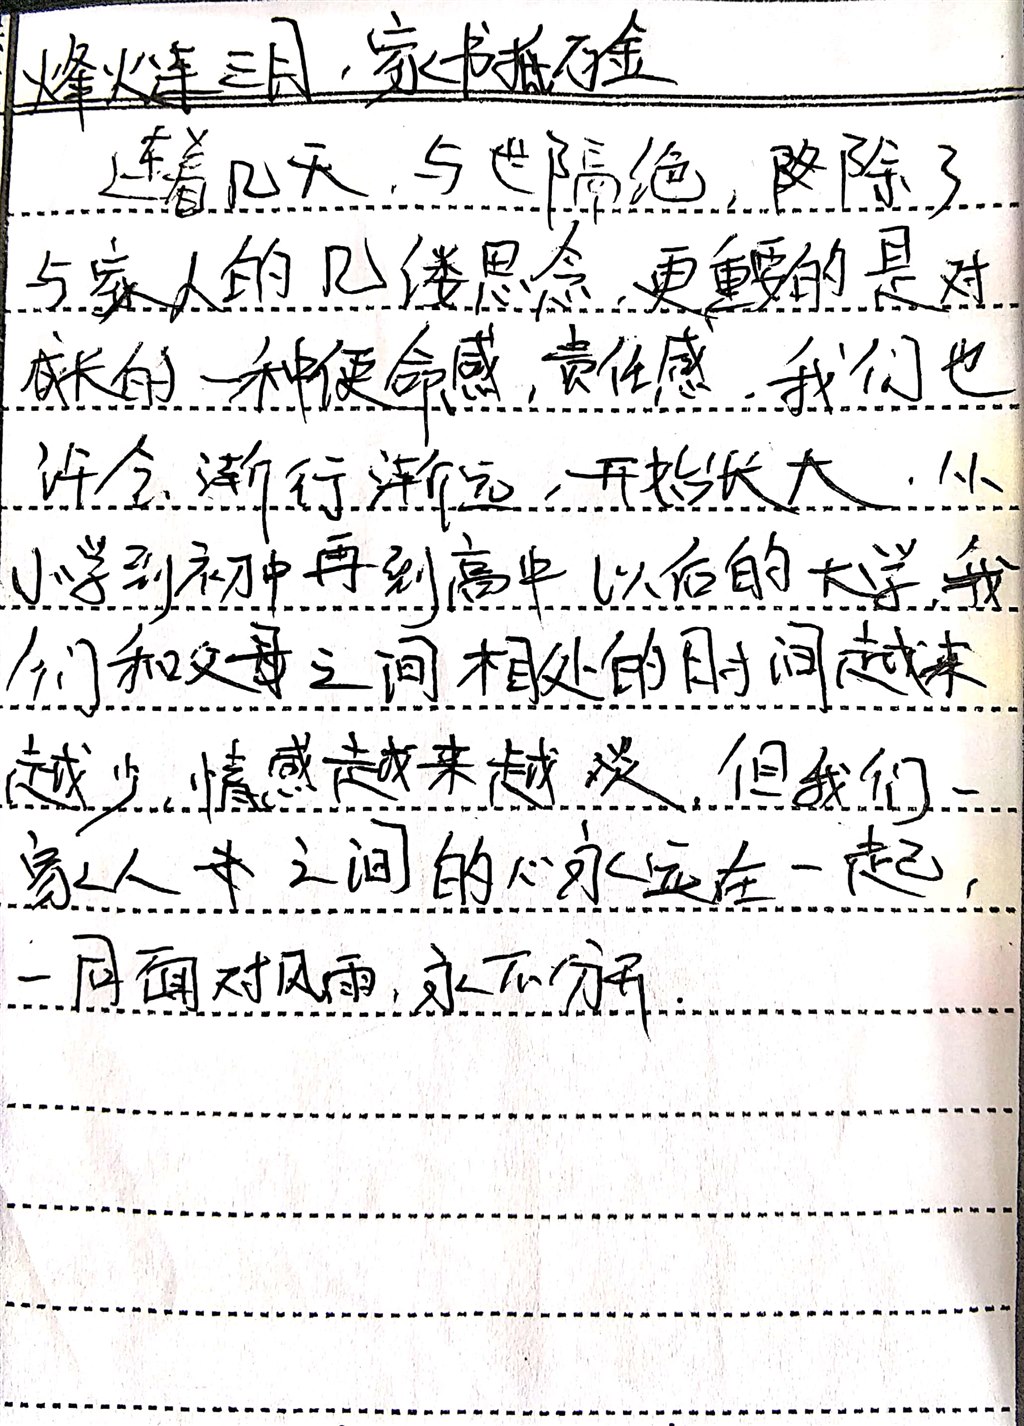 烽火连三月，家书抵万金
连着几天，与世隔绝，除了
与家人的几缕思念，更重要的是对
成长的一种使命感，责任感，我们也
许会渐行渐远，开始长大，从
小学到初中再到高中以后的大学，我
们和父母之间相处的时间越来
越少，情感越来越淡，但我们一
家人之间的心永远在一起，
一同面对风雨，永不分开.